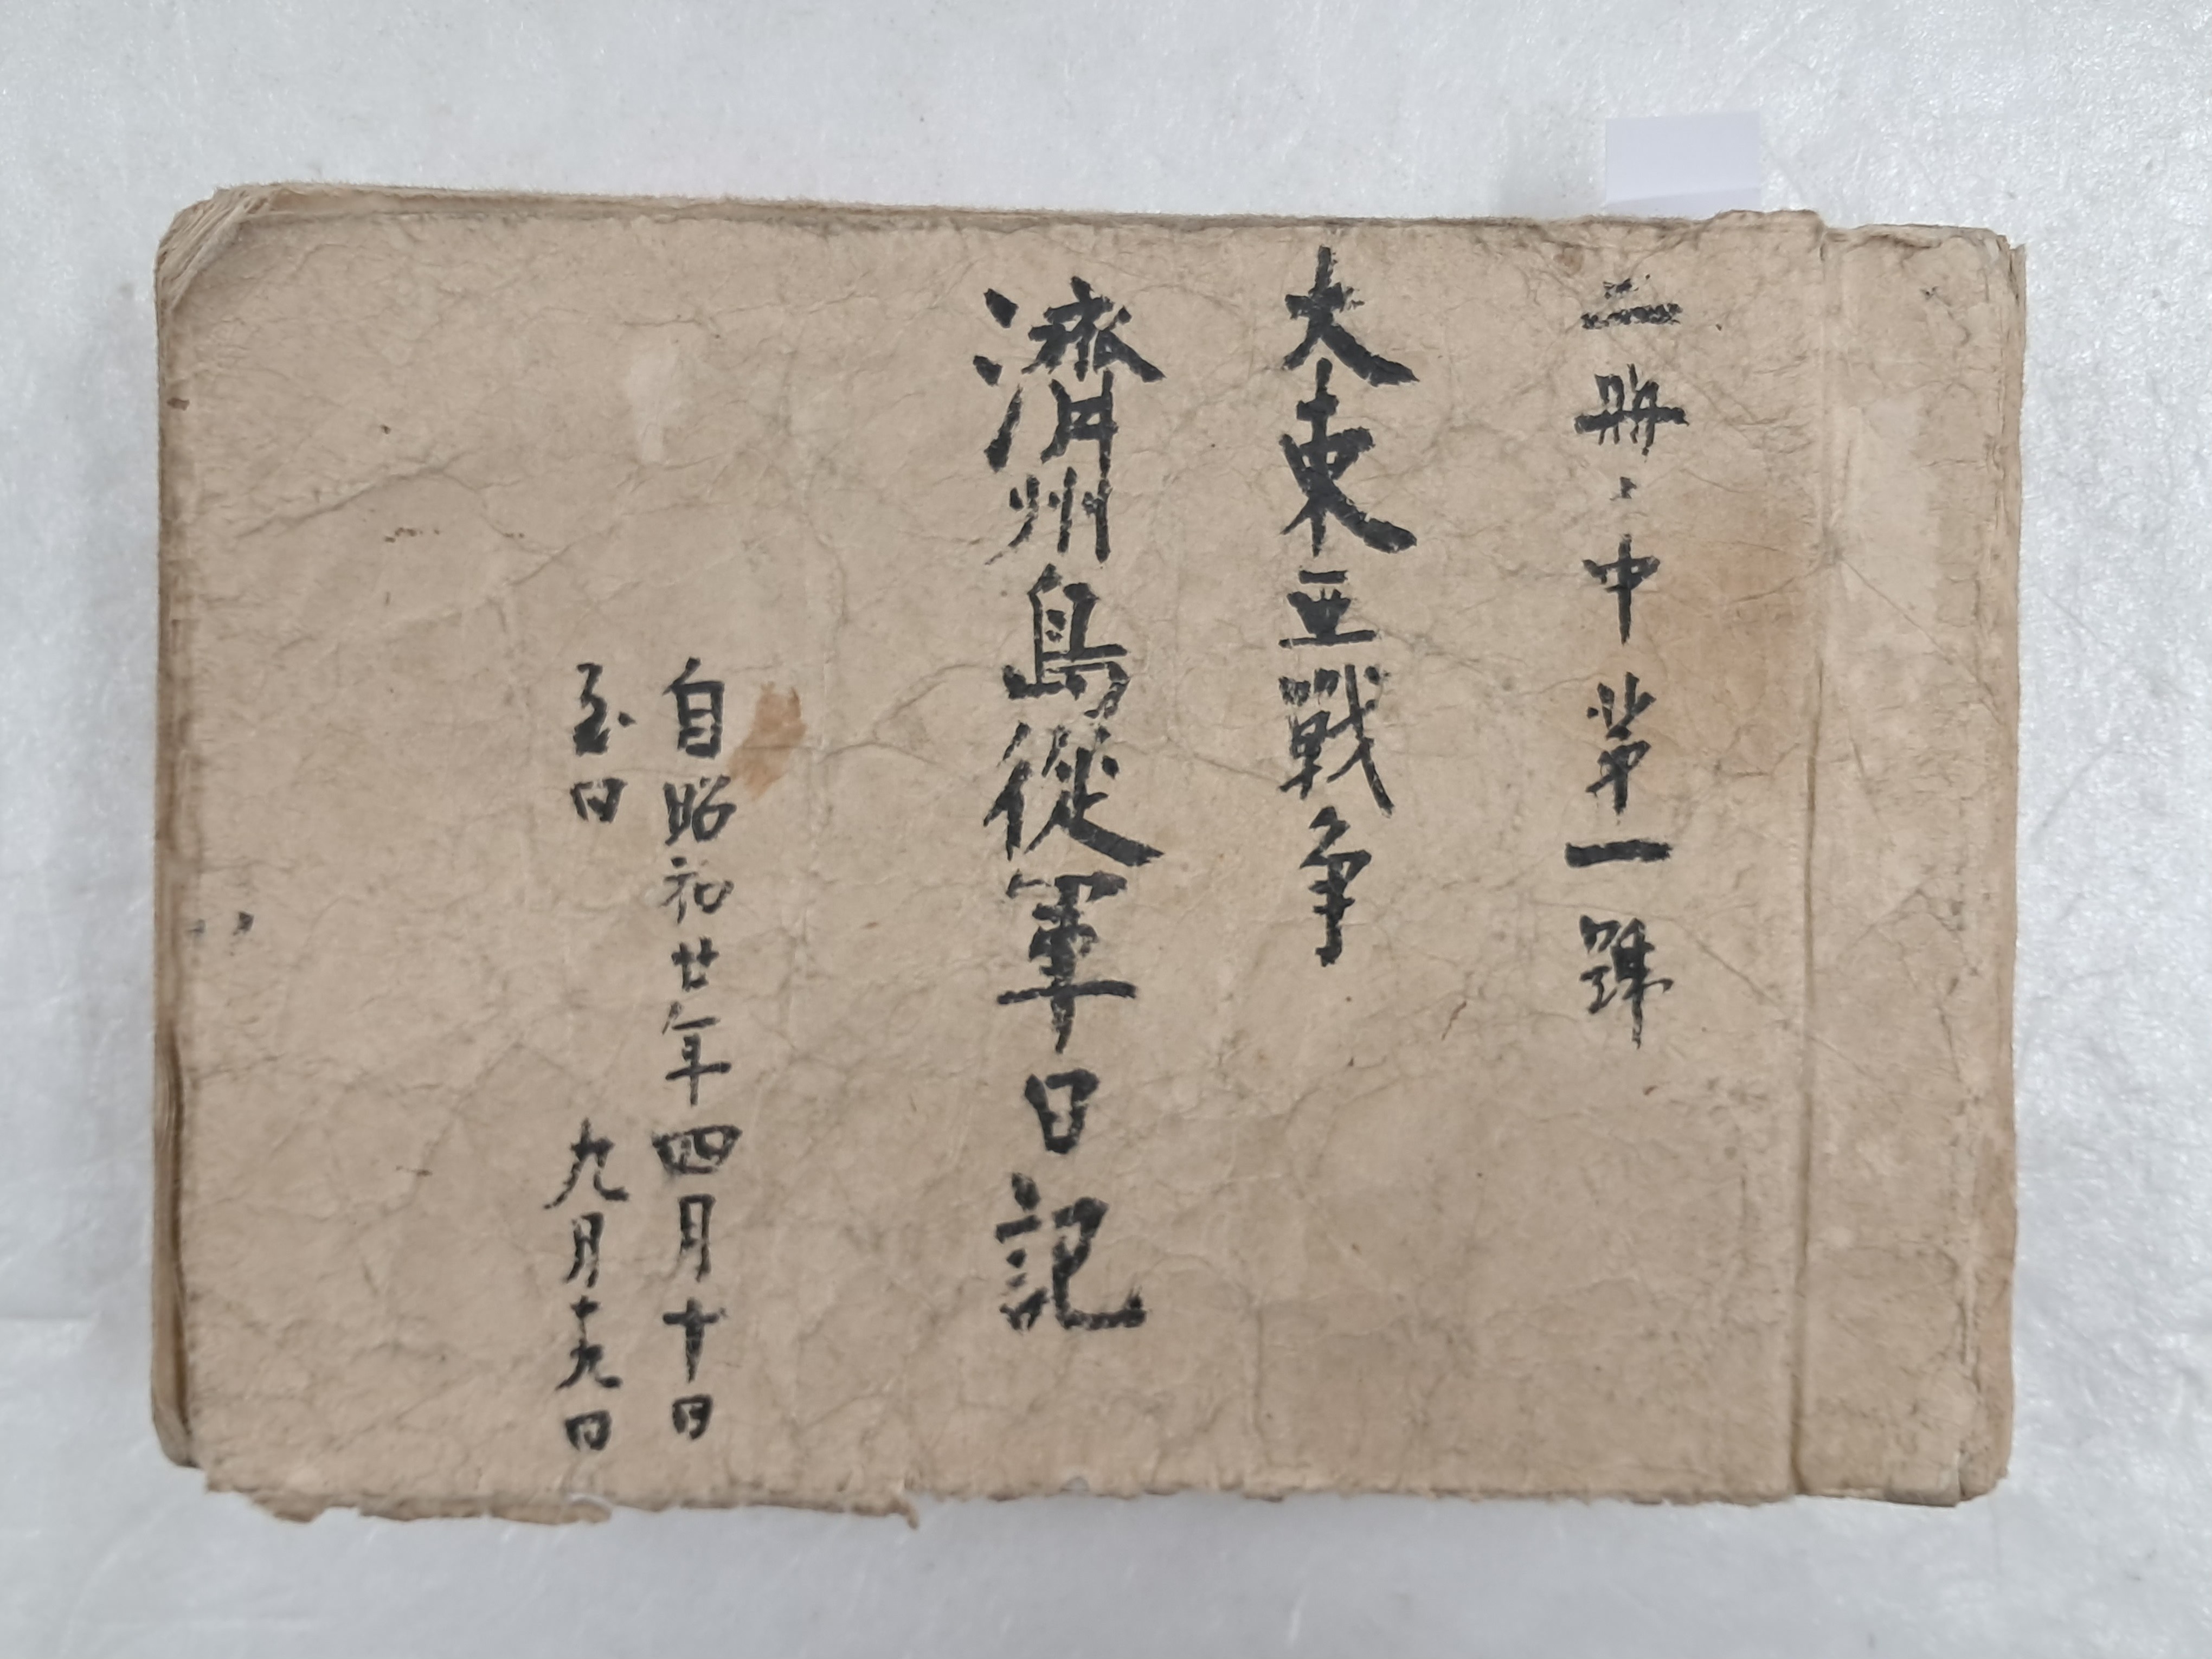 二冊、中第一號
大東亜戰争
濟州島從軍日記
自昭和廿年四月十日
至日 九月十九日